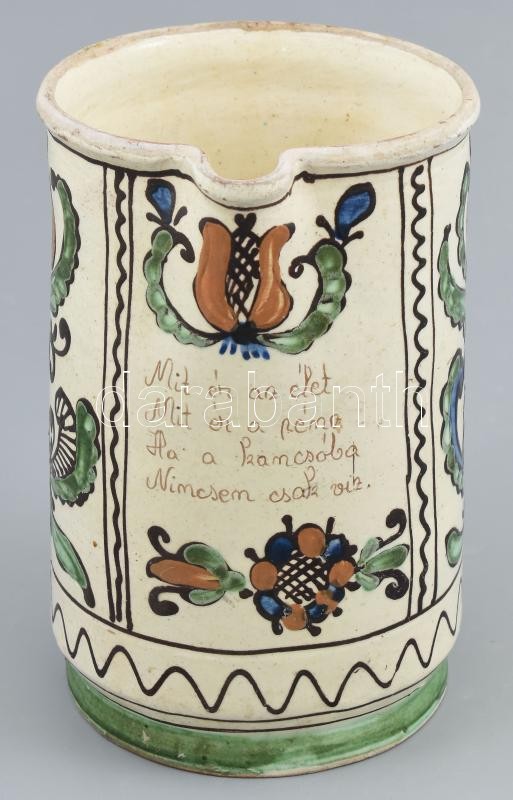 Mit ér az élet
Mit ér a péng
Ha a kancsóba
Nincsen csak viz.
darabanth